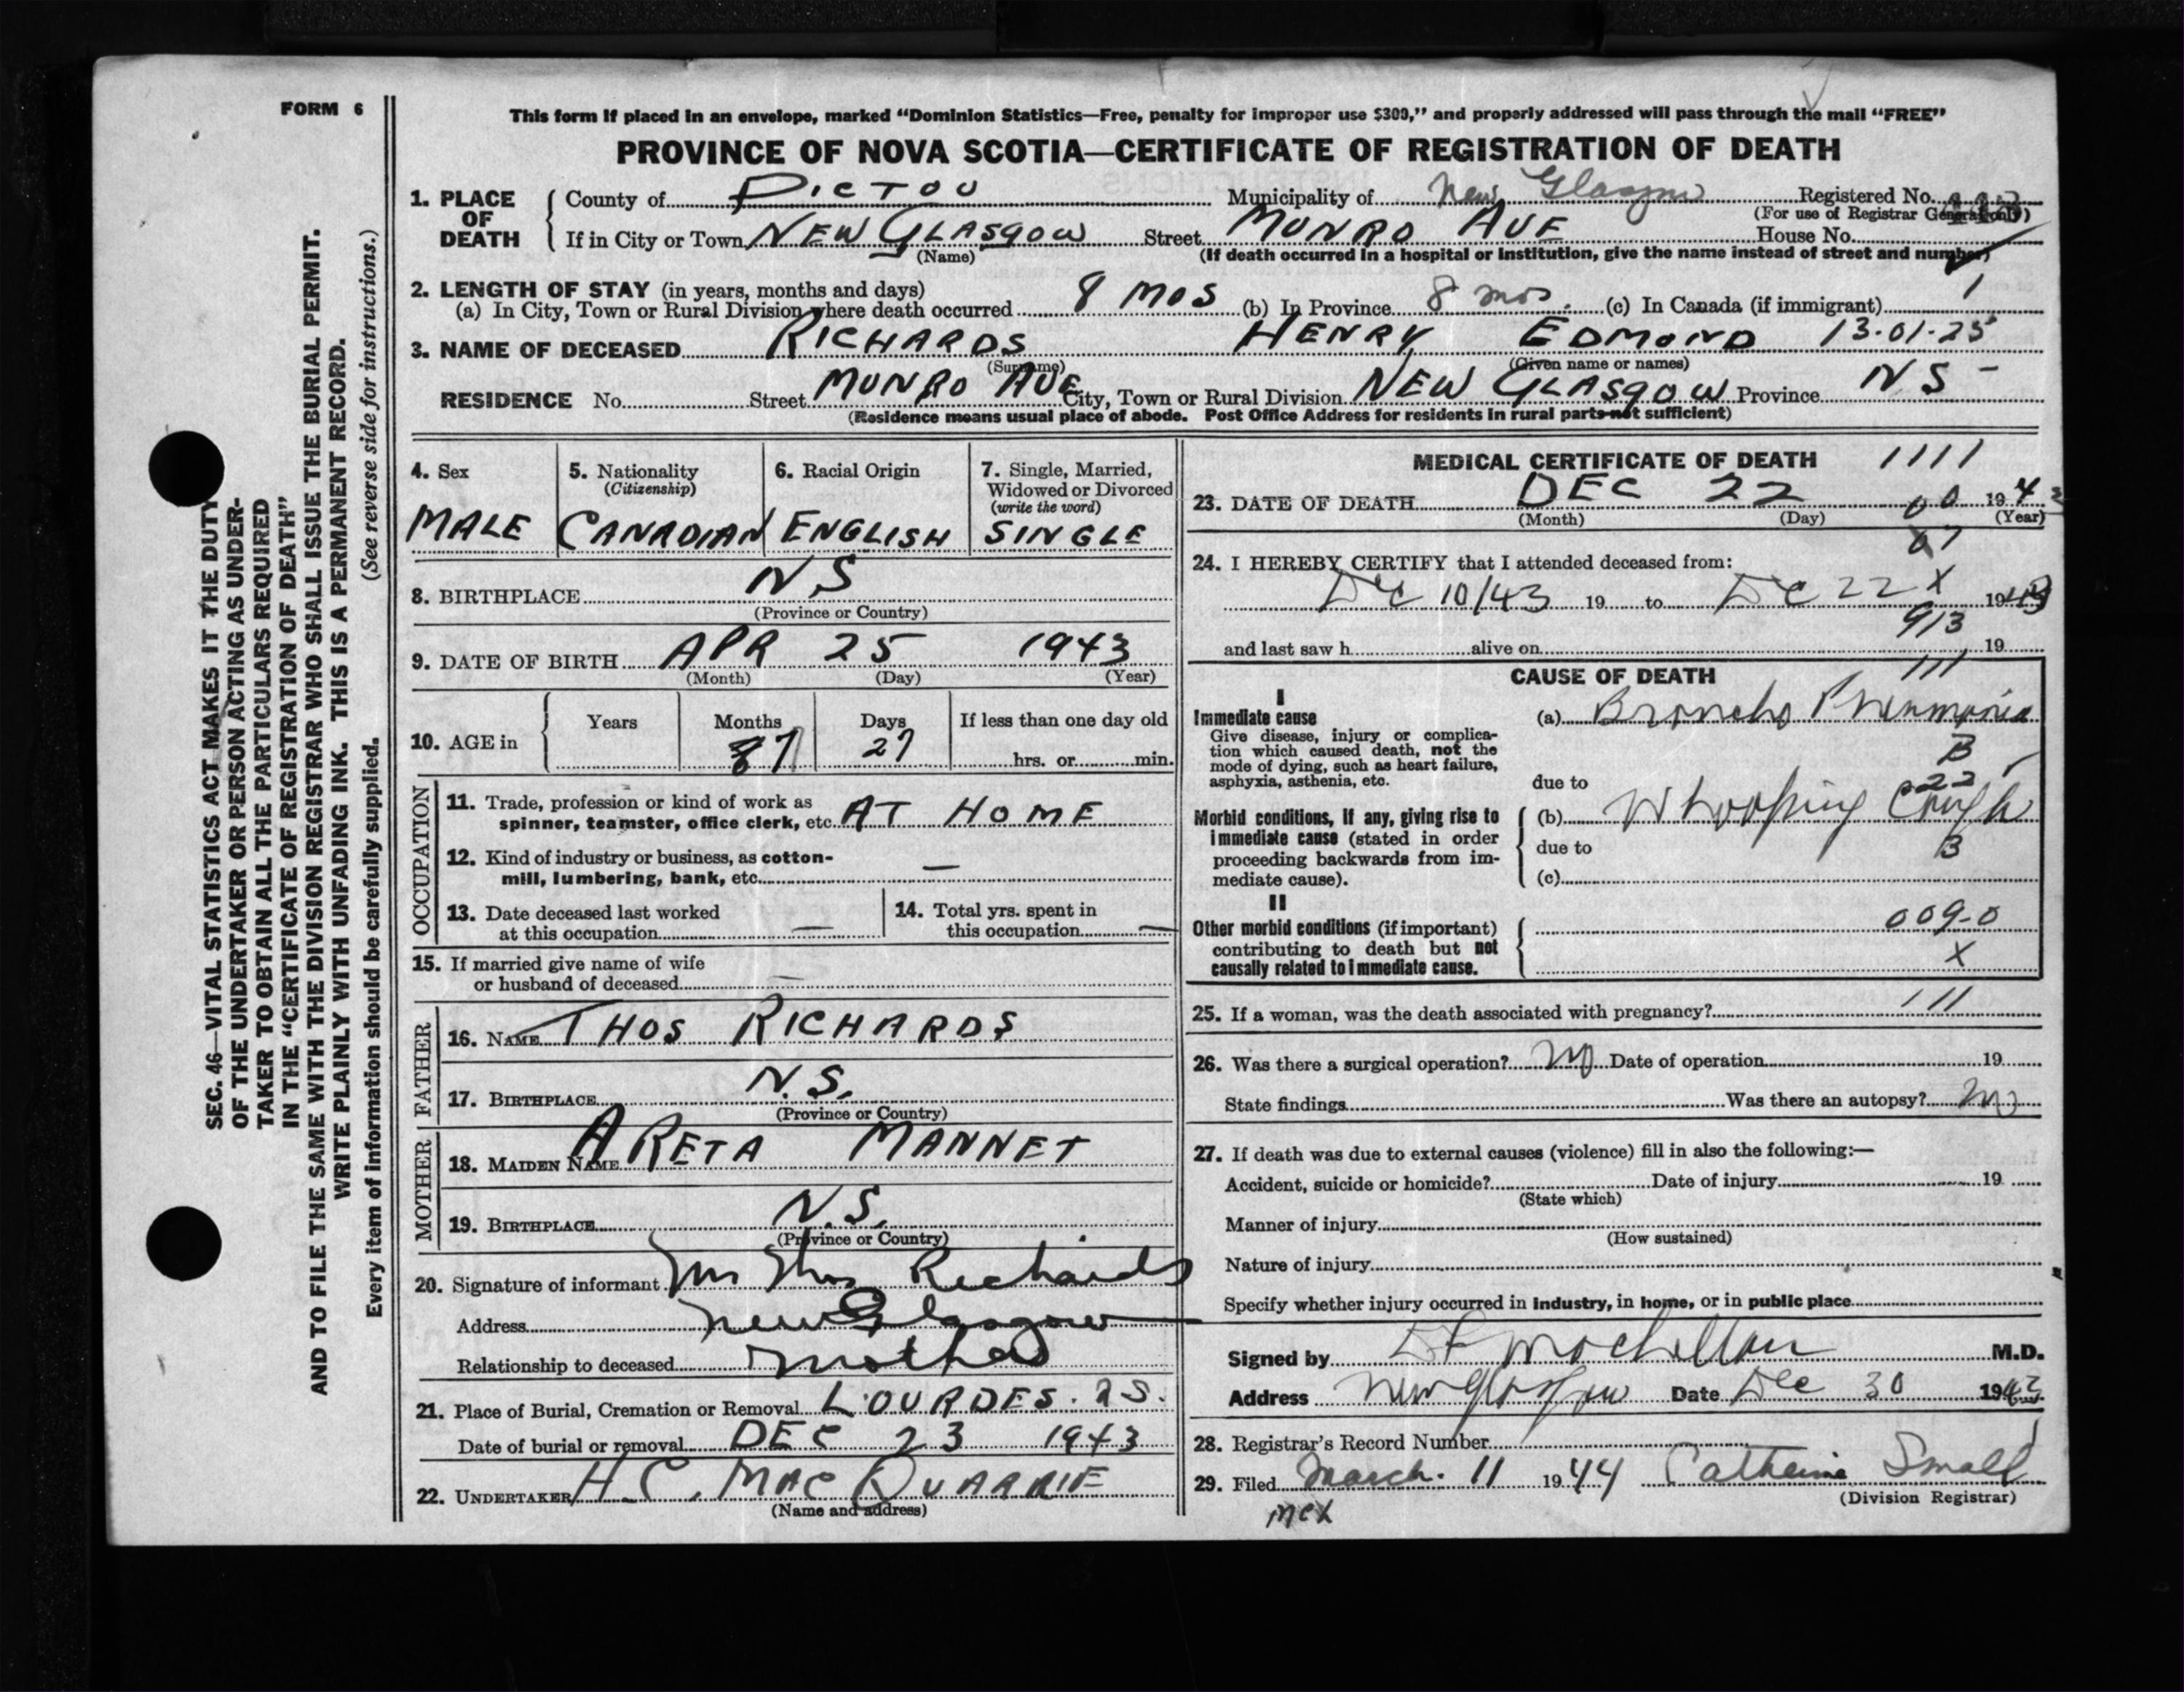 FORM 6
This form if placed in an envelope, marked “Dominion Statistics—Free, penalty for improper use $300,” and properly addressed will pass through the mail “FREE”
PROVINCE OF NOVA SCOTIA—CERTIFICATE OF REGISTRATION OF DEATH
1. PLACE OF DEATH County of PICTOU Municipality of New Glasgow Registered No.
(For use of Registrar General only)
If in City or Town NEW GLASGOW Street MUNRO AVE House No.
(Name) (If death occurred in a hospital or institution, give the name instead of street and number)
2. LENGTH OF STAY (in years, months and days)
(a) In City, Town or Rural Division where death occurred 8 MOS (b) In Province 8 mos. (c) In Canada (if immigrant)
3. NAME OF DECEASED RICHARDS HENRY EDMOND 13-01-25
(Surname) (Given name or names)
RESIDENCE No. Street MUNRO AVE City, Town or Rural Division NEW GLASGOW Province NS -
(Residence means usual place of abode. Post Office Address for residents in rural parts not sufficient)
4. Sex
MALE
5. Nationality
(Citizenship)
CANADIAN
6. Racial Origin
ENGLISH
7. Single, Married,
Widowed or Divorced
(write the word)
SINGLE
8. BIRTHPLACE NS
(Province or Country)
9. DATE OF BIRTH APR 25 1943
(Month) (Day) (Year)
10. AGE in
Years Months Days If less than one day old
87 27 hrs. or min.
OCCUPATION
11. Trade, profession or kind of work as
spinner, teamster, office clerk, etc. AT HOME
12. Kind of industry or business, as cotton-
mill, lumbering, bank, etc. —
13. Date deceased last worked
at this occupation —
14. Total yrs. spent in
this occupation —
15. If married give name of wife
or husband of deceased —
FATHER
16. NAME THOS RICHARDS
17. BIRTHPLACE N.S.
(Province or Country)
MOTHER
18. MAIDEN NAME ARETA MANNET
19. BIRTHPLACE N.S.
(Province or Country)
20. Signature of informant Mrs Thos Richards
Address New Glasgow
Relationship to deceased mother
21. Place of Burial, Cremation or Removal LOURDES. NS.
Date of burial or removal DEC 23 1943
22. UNDERTAKER H.C. MACQUARRIE
(Name and address)
MEDICAL CERTIFICATE OF DEATH 1111
23. DATE OF DEATH DEC 22 00 1943
(Month) (Day) (Year)
24. I HEREBY CERTIFY that I attended deceased from:
Dec 10/43 19 to Dec 22 X 1943
and last saw h alive on 913 19
CAUSE OF DEATH 111
I
Immediate cause
Give disease, injury or complica-
tion which caused death, not the
mode of dying, such as heart failure,
asphyxia, asthenia, etc.
(a) Broncho Pneumonia
B
due to 22
Morbid conditions, if any, giving rise to
immediate cause (stated in order
proceeding backwards from im-
mediate cause).
(b) Whooping Cough
due to B
(c)
II
Other morbid conditions (if important)
contributing to death but not
causally related to immediate cause.
009-0
X
25. If a woman, was the death associated with pregnancy? 111
26. Was there a surgical operation? No Date of operation 19
State findings Was there an autopsy? No
27. If death was due to external causes (violence) fill in also the following:—
Accident, suicide or homicide? Date of injury 19
(State which)
Manner of injury
(How sustained)
Nature of injury
Specify whether injury occurred in industry, in home, or in public place
Signed by M.D.
Address New Glasgow Date Dec 30 1943
28. Registrar's Record Number
29. Filed March. 11 1944 Catherine Small
(Division Registrar)
SEC. 46—VITAL STATISTICS ACT MAKES IT THE DUTY
OF THE UNDERTAKER OR PERSON ACTING AS UNDER-
TAKER TO OBTAIN ALL THE PARTICULARS REQUIRED
IN THE “CERTIFICATE OF REGISTRATION OF DEATH”
AND TO FILE THE SAME WITH THE DIVISION REGISTRAR WHO SHALL ISSUE THE BURIAL PERMIT.
WRITE PLAINLY WITH UNFADING INK. THIS IS A PERMANENT RECORD.
Every item of information should be carefully supplied. (See reverse side for instructions.)